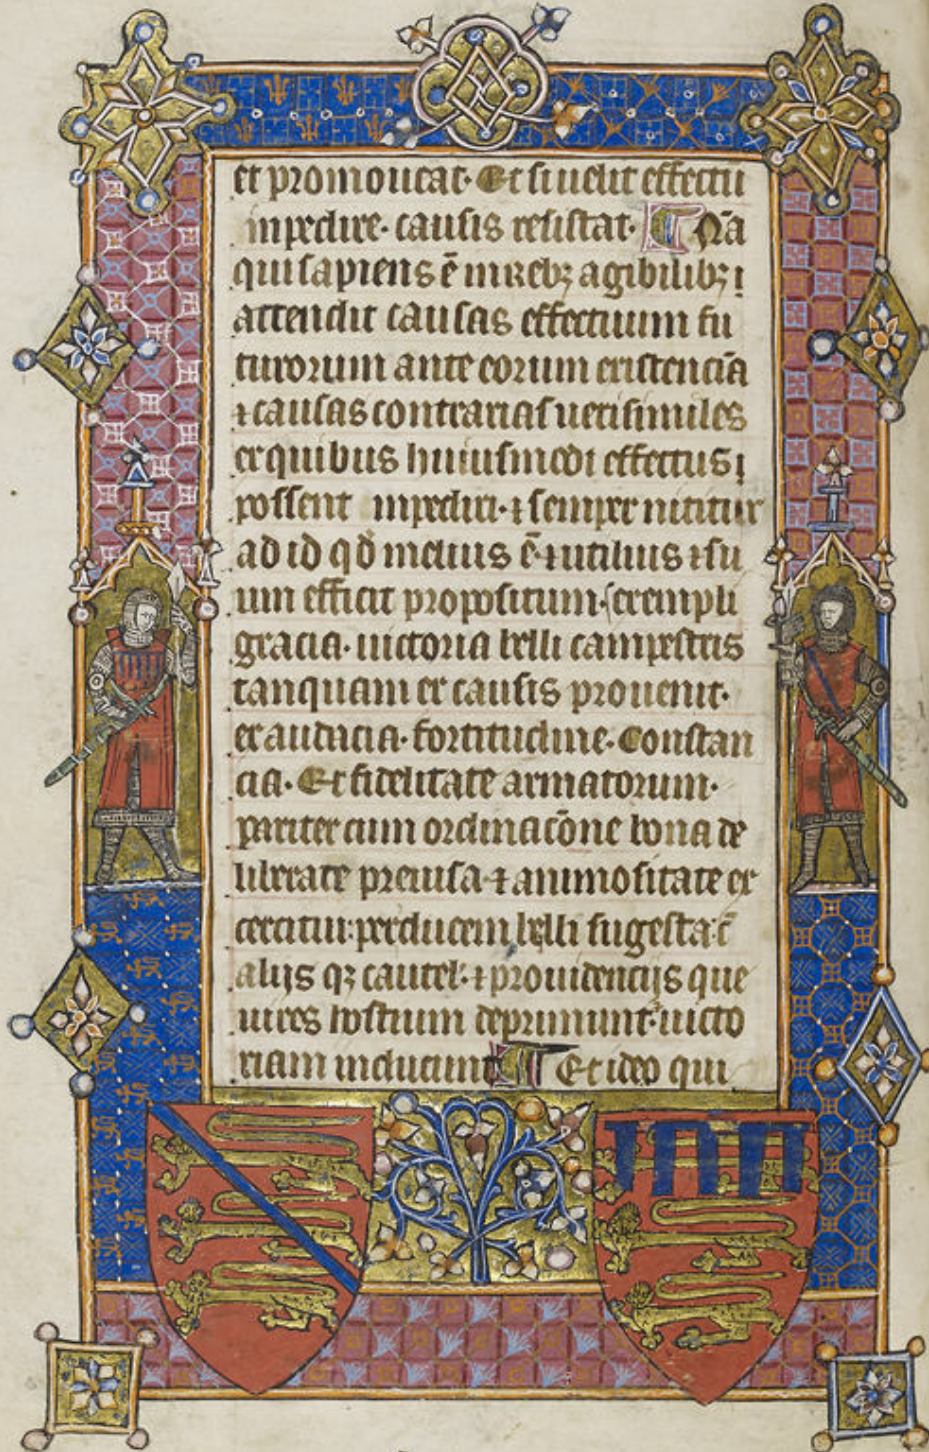 et promoueat· Et si uelit effectū
inpedire· causis resistat· Nā
qui sapiens ē in rebꝫ agibilibꝫ i
attendit causas effectiuum fu
turorum ante eorum existenciā
⁊ causas contrarias uerisimiles
ex quibus huiusmodi effectus i
possent inpediri· ⁊ semper nititur
ad id qđ melius ē ⁊ utilius ⁊ su
um efficit propositum· exempli
gracia· uictoria belli campestris
tanquam ex causis prouenit·
ex audacia· fortitudine· Constan
cia· Et fidelitate armatorum·
pariter cum ordinacōne bona de
liberate preuisa ⁊ animositate ex
cercitui per ducem belli sugesta c̄
alijs qꝫ cautel· ⁊ prouidencijs que
uires hostium deprimunt· uicto
riam inducunt Et ideo qui